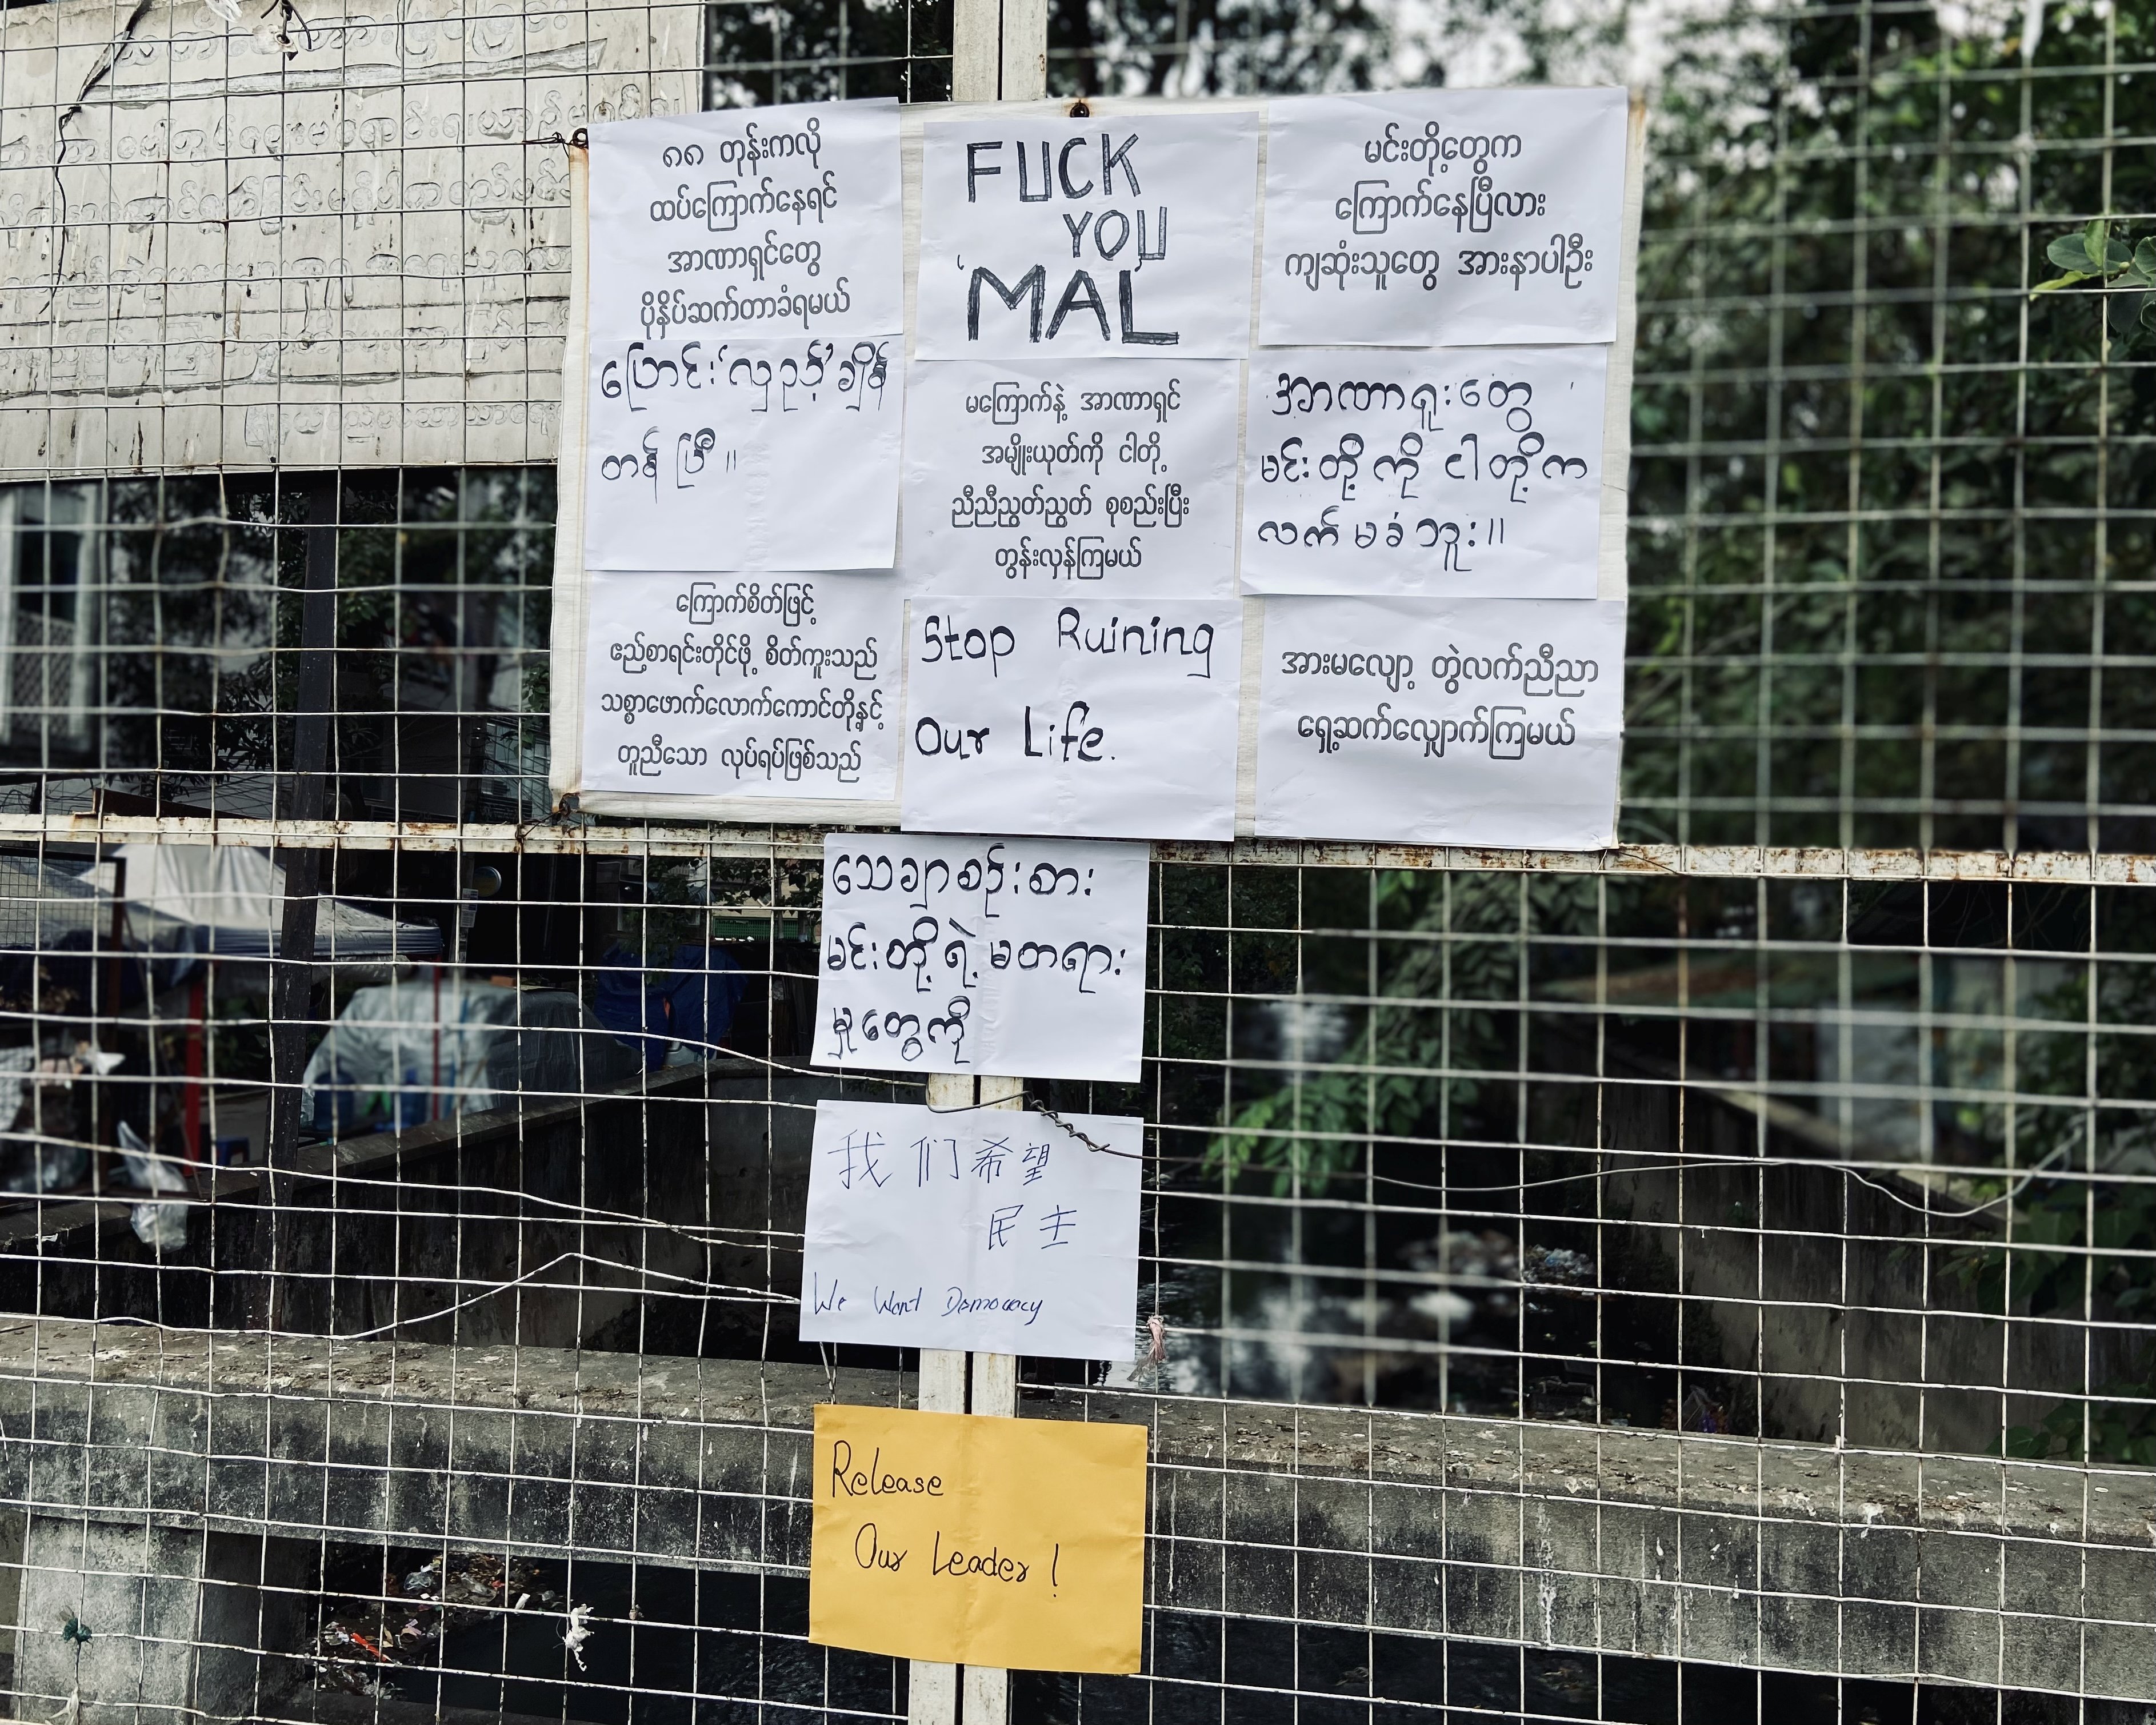 ၈၈ တုန်းကလို
ထပ်ကြောက်နေရင်
အာဏာရှင်တွေ
ပိုနှိပ်ဆက်တာခံရမယ်
FUCK
YOU
'MAL'
မင်းတို့တွေက
ကြောက်နေပြီလား
ကျဆုံးသူတွေ အားနာပါဦး
ပြောင်း'လှည့်'ချိန်
တန်ပြီ။
မကြောက်နဲ့ အာဏာရှင်
အမျိုးယုတ်ကို ငါတို့
ညီညီညွတ်ညွတ် စုစည်းပြီး
တွန်းလှန်ကြမယ်
အာဏာရူးတွေ
မင်းတို့ကို ငါတို့က
လက်မခံဘူး။
ကြောက်စိတ်ဖြင့်
ဧည့်စာရင်းတိုင်ဖို့ စိတ်ကူးသည်
သစ္စာဖောက်လောက်ကောင်တို့နှင့်
တူညီသော လုပ်ရပ်ဖြစ်သည်
Stop Ruining
Our Life.
အားမလျော့ တွဲလက်ညီညာ
ရှေ့ဆက်လျှောက်ကြမယ်
သေချာစဉ်းစား
မင်းတို့ရဲ့ မတရား
မှုတွေကို
我们希望
民主
We Want Democracy
Release
Our Leader!